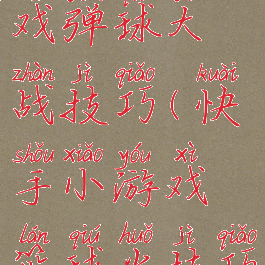 戏弹球大
zhàn jì qiǎo kuài
战技巧(快
shǒu xiǎo yóu xì
手小游戏
lán qiú huǒ jì qiǎo
篮球火技巧